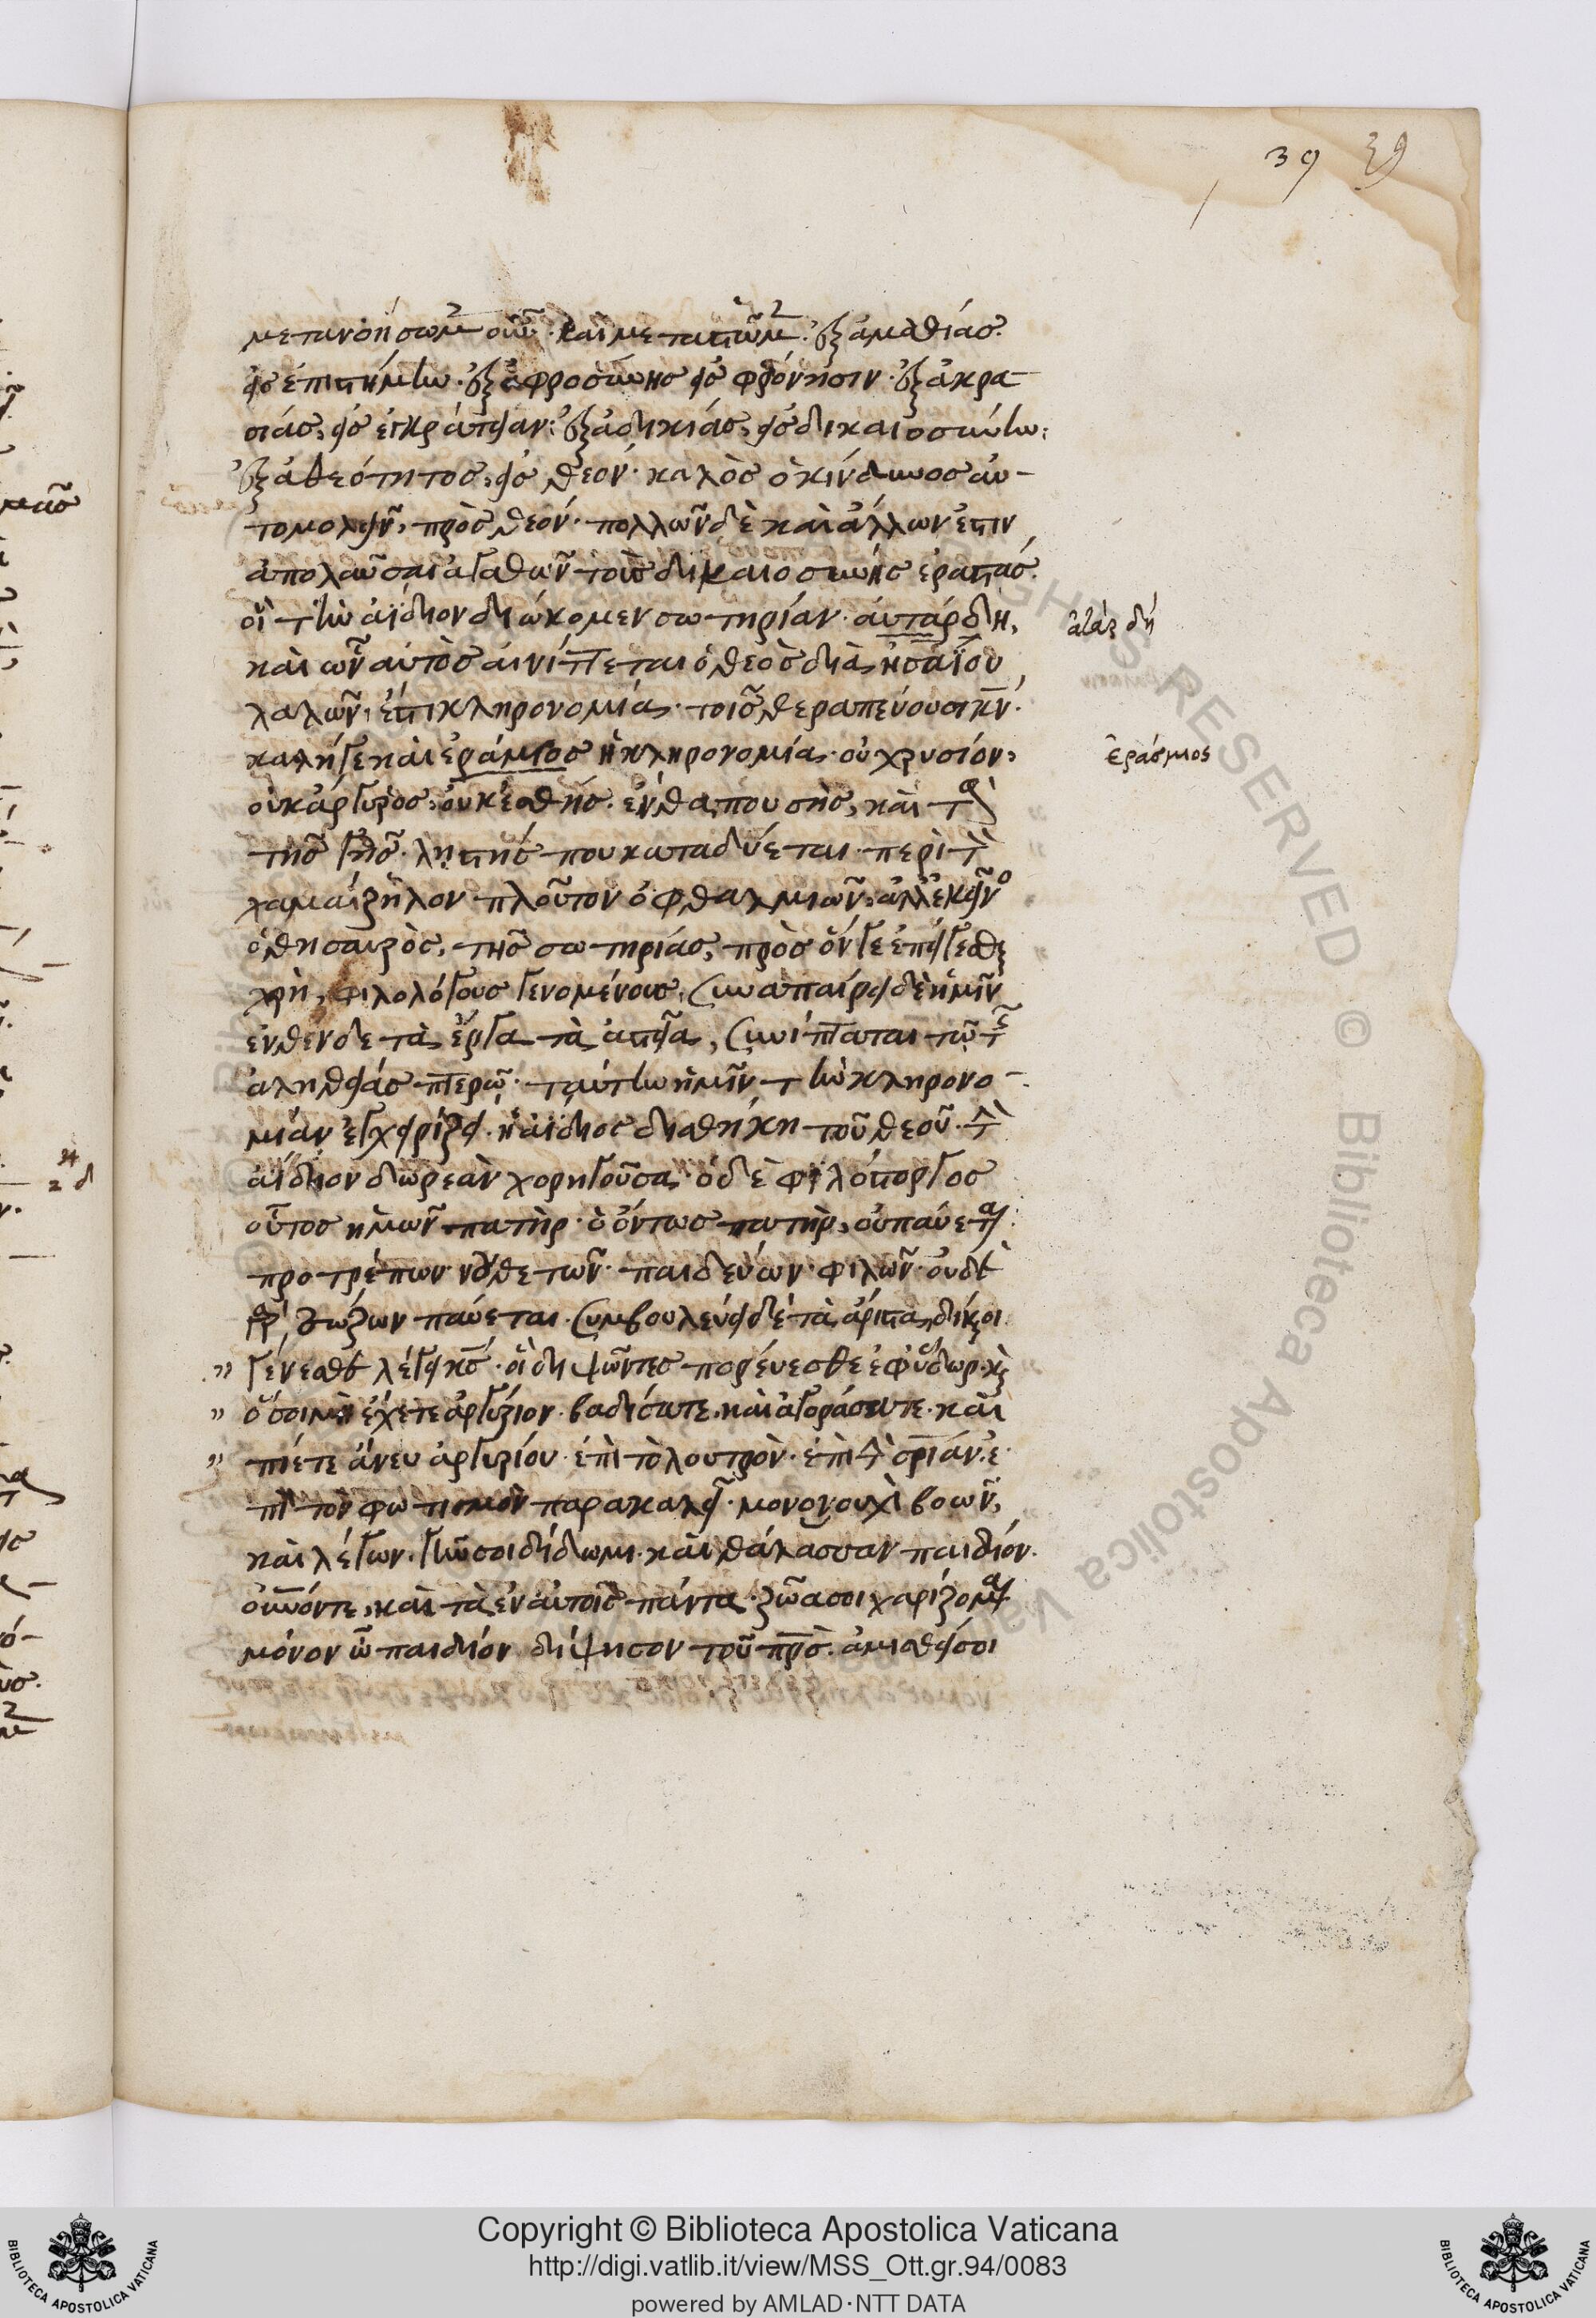 39 39
μετανοήσωμεν οὖν· καὶ μεταστῶμεν· ἐξ ἀμαθίας·
εἰς ἐπιστήμην· ἐξ ἀφροσύνης εἰς φρόνησιν· ἐξ ἀκρα-
σίας, εἰς ἐγκράτειαν· ἐξ ἀδικίας, εἰς δικαιοσύνην·
ἐξ ἀθεότητος, εἰς θεόν· καλὸς ὁ κίνδυνος αὐ-
τομολεῖν, πρὸς θεόν· πολλῶν δὲ καὶ ἄλλων ἔστιν
ἀπολαῦσαι ἀγαθῶν τοὺς δικαιοσύνης ἐραστάς·
οἳ τὴν ἀΐδιον διώκομεν σωτηρίαν· αὐτάρ δὴ, ἀτὰρ δή
καὶ ὧν αὐτὸς αἰνίττεται ὁ θεὸς διὰ ἡσαΐου
λαλῶν, ἔστι κληρονομία τοῖς θεραπεύουσι κν·
καλή γε καὶ ἐράμιος ἡ κληρονομία· οὐ χρυσίον, ἐράσμιος
οὐκ ἄργυρος, οὐκ ἐσθής· ἔνθα που σὴς, καὶ τὰ
τῆς γῆς· λῃστής που καταδύεται περὶ τὸν
χαμαίζηλον πλοῦτον ὀφθαλμιῶν, ἀλλ' ἐκεῖνο
ὁ θησαυρὸς, τῆς σωτηρίας, πρὸς ὅν γε ἐπείγεσθαι
χρὴ, φιλολόγους γενομένους, συναπαίρει δὲ ἡμῖν
ἐνθένδε τὰ ἔργα τὰ ἀστεῖα, συνίπταται τῷ τῆς
ἀληθείας πτερῷ· ταύτην ἡμῖν τὴν κληρονο-
μίαν ἐγχειρίζει ἡ ἀΐδιος διαθήκη τοῦ θεοῦ τὴν
ἀΐδιον δωρεὰν χορηγοῦσα· ὁ δὲ φιλόστοργος
οὗτος ἡμῶν πατήρ· ὁ ὄντως πατήρ, οὐ παύεται
προτρέπων νουθετῶν· παιδεύων· φιλῶν· οὐδὲ
γὰρ, σώζων παύεται· συμβουλεύει δὲ τὰ ἄριστα, δίκαιοι
" γένεσθε λέγει κς· οἱ διψῶντες πορεύεσθε ἐφ' ὕδωρ· καὶ
" ὅσοι μὴ ἔχετε ἀργύριον· βαδίσατε, καὶ ἀγοράσατε· καὶ
" πίετε ἄνευ ἀργυρίου· ἐπὶ τὸ λουτρὸν· ἐπὶ τὴν σριαν· ἐ-
πὶ τὸν φωτισμὸν παρακαλεῖ· μονονουχὶ βοῶν,
καὶ λέγων· γῆν σοι δίδωμι καὶ θάλασσαν παιδίον·
ουνόν τε, καὶ τὰ ἐν αὐτοῖς πάντα ζῶα σοι χαρίζομαι·
μόνον ὦ παιδίον δίψησον τοῦ πρς· ἀμισθεί σοι
Copyright © Biblioteca Apostolica Vaticana
http://digi.vatlib.it/view/MSS_Ott.gr.94/0083
powered by AMLAD·NTT DATA